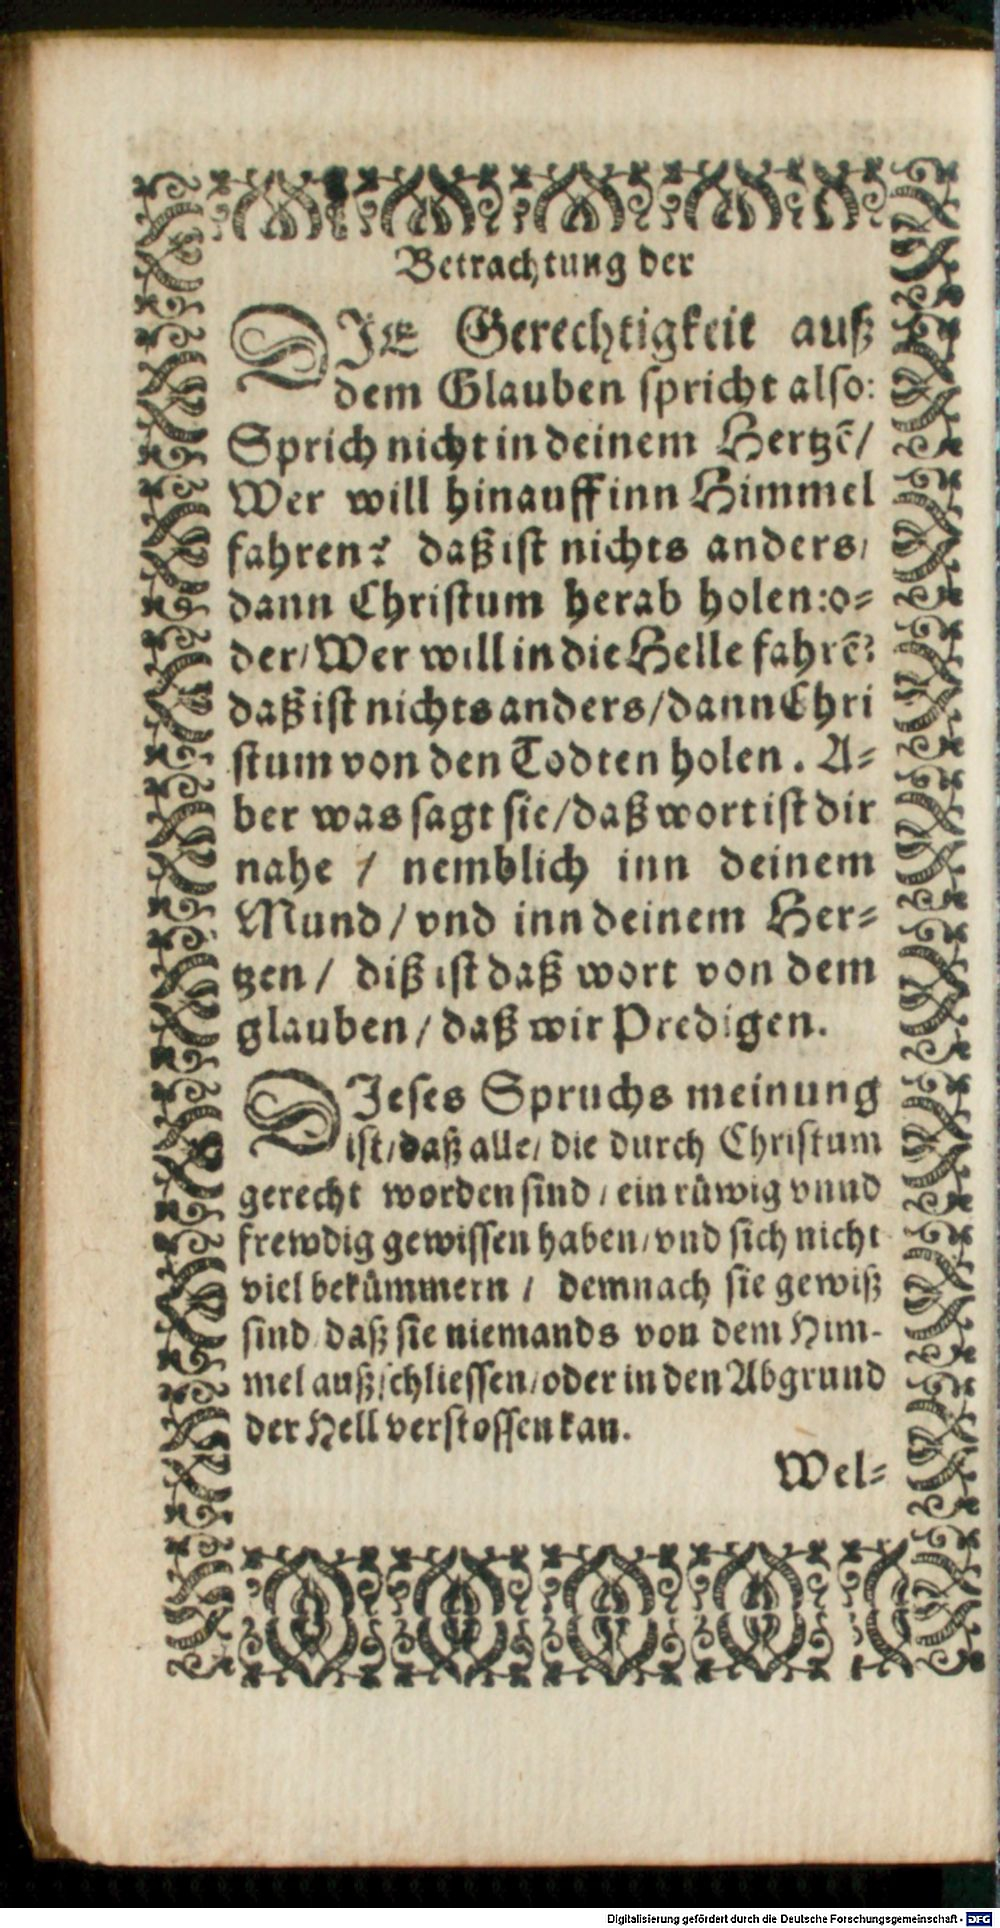 Betrachtung der
DIE Gerechtigkeit auß
dem Glauben spricht also:
Sprich nicht in deinem Hertzẽ/
Wer will hinauff inn Himmel
fahren? daß ist nichts anders/
dann Christum herab holen: o=
der/ Wer will in die Helle fahrẽ?
daß ist nichts anders/ dann Chri
stum von den Todten holen. A=
ber was sagt sie/ daß wort ist dir
nahe / nemblich inn deinem
Mund/ vnd inn deinem Her=
tzen/ diß ist daß wort von dem
glauben/ daß wir Predigen.
DIeses Spruchs meinung
ist/ daß alle/ die durch Christum
gerecht worden sind/ ein rüwig vnnd
frewdig gewissen haben/ vnd sich nicht
viel bekümmern / demnach sie gewiß
sind daß sie niemands von dem Him-
mel außschliessen/ oder in den Abgrund
der Hell verstossen kan.
Wel=
Digitalisierung gefördert durch die Deutsche Forschungsgemeinschaft - DFG